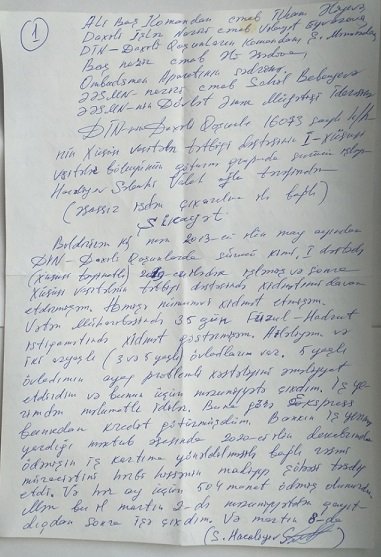 ①
Ali Baş Komandan cənab İlham Əliyevə,
Daxili İşlər Naziri cənab Vilayət Eyvazova,
DİN-Daxili Qoşunların Komandanı Ş. Məmmədova,
Baş nazir cənab Əli Əsədova,
Ombudsman Aparatının sədrinə,
ƏƏSMN naziri cənab Sahil Babayevə
ƏƏSMN-nin Dövlət Əmək Müfəttişi İdarəsinə
DİN-nin Daxili Qoşunla 16073 saylı h/h
nin Xüsusi vasitələr tətbiqi dəstəsinin I-Xüsusi
vasitələr bölüyünün götürmə qrupunda sürücü işləyən
Hacalıyev Vidat oğlu tərəfindən
(əsassız işdən çıxarılma ilə bağlı)
Şikayət.
Bildirirəm ki, mən 2013-cü ilin may ayından
DİN-Daxili Qoşunlarda sürücü kimi, I dəstədə
(xüsusi təyinatlı) işləmiş və sonra
Xüsusi vasitələrin tətbiqi dəstəsində xidmətimi davam
etdirmişəm. Həmişə nümunəvi xidmət etmişəm.
Vətən Müharibəsində 35 gün Füzuli-Hadrut
istiqamətində xidmət göstərmişəm. Ailəliyəm və
iki azyaşlı (3 və 5 yaşlı) övladlarım var. 5 yaşlı
övladımın ayaq problemli xəstəliyini əməliyyat
etdirdim və bunun üçün məzuniyyətə çıxdım. İş ye-
rimdən məlumatlı idilər. Buna görə Ekspress
bankından kredit götürmüşdüm. Bankın iş yerimə
yazdığı məktub əsasında 2020-ci ilin dekabrından
ödənişin iş kartıma yönəldilməsi ilə bağlı rəsmi
müraciətini hərbi hissənin maliyyə şöbəsi təsdiq
etdi. Və hər ay üçün 504 manat ödəniş olunurdu.
Mən bu il martın 2-də məzuniyyətdən qayıt-
dıqdan sonra işə çıxdım. Və martın 8-də
(S. Hacalıyev)